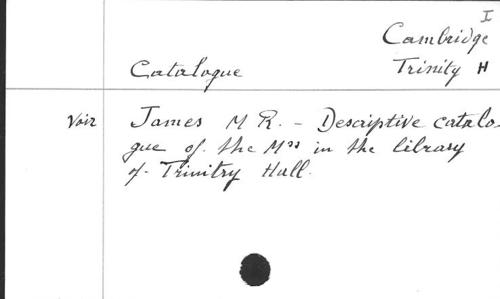 I
Cambridge
Catalogue Trinity H
Voir James M R. - Descriptive catalo-
gue of the Mss in the library
of Trinitry Hall.